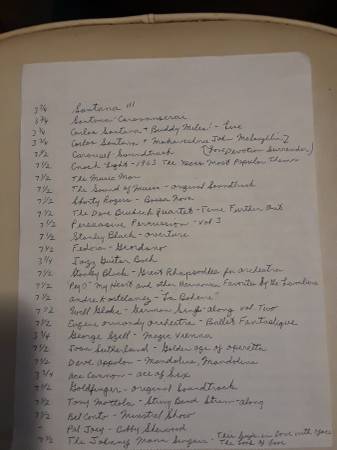 3 3/4 Santana III
3 3/4 Santana Caravanserai
3 3/4 Carlos Santana + Buddy Miles! - Live
3 3/4 Carlos Santana + Mahavishnu John McLaughlin
(Love Devotion Surrender)
7 1/2 Carousel Soundtrack
7 1/2 Enoch Light - 1963 The Years Most Popular Themes
7 1/2 The Music Man
7 1/2 The Sound of Music - original Soundtrack
7 1/2 Shorty Rogers - Bossa Nova
7 1/2 The Dave Brubeck Quartet - Time Further Out
7 1/2 Persuasive Percussion - Vol 3
7 1/2 Stanley Black - overture
7 1/2 Fedora - Giordano
3 3/4 Jazz Guitar Bach
7 1/2 Stanley Black - Great Rhapsodies for Orchestra
7 1/2 "My Heart and other Hawaiian Favorites by the
7 1/2 Andre Kostelanetz - "La Boheme"
7 1/2 Will Glahe - German Sing along Vol Two
7 1/2 Eugene Ormandy Orchestra - Ballet Fantastique
3 3/4 George Szell - Magic Vienna
7 1/2 Joan Sutherland - Golden age of operetta
7 1/2 Dave Appolon - Mandolins, Mandolins
3 3/4 Ace Cannon - Ace of Sax
7 1/2 Goldfinger - original Soundtrack
7 1/2 Tony Mottola - String Band Strum-along
7 1/2 Bel Canto - Minstrel Show
- Pal Joey - Bobby Sherwood
7 1/2 The Johnny Mann Singers - This Guy's in Love with You
The Look of Love